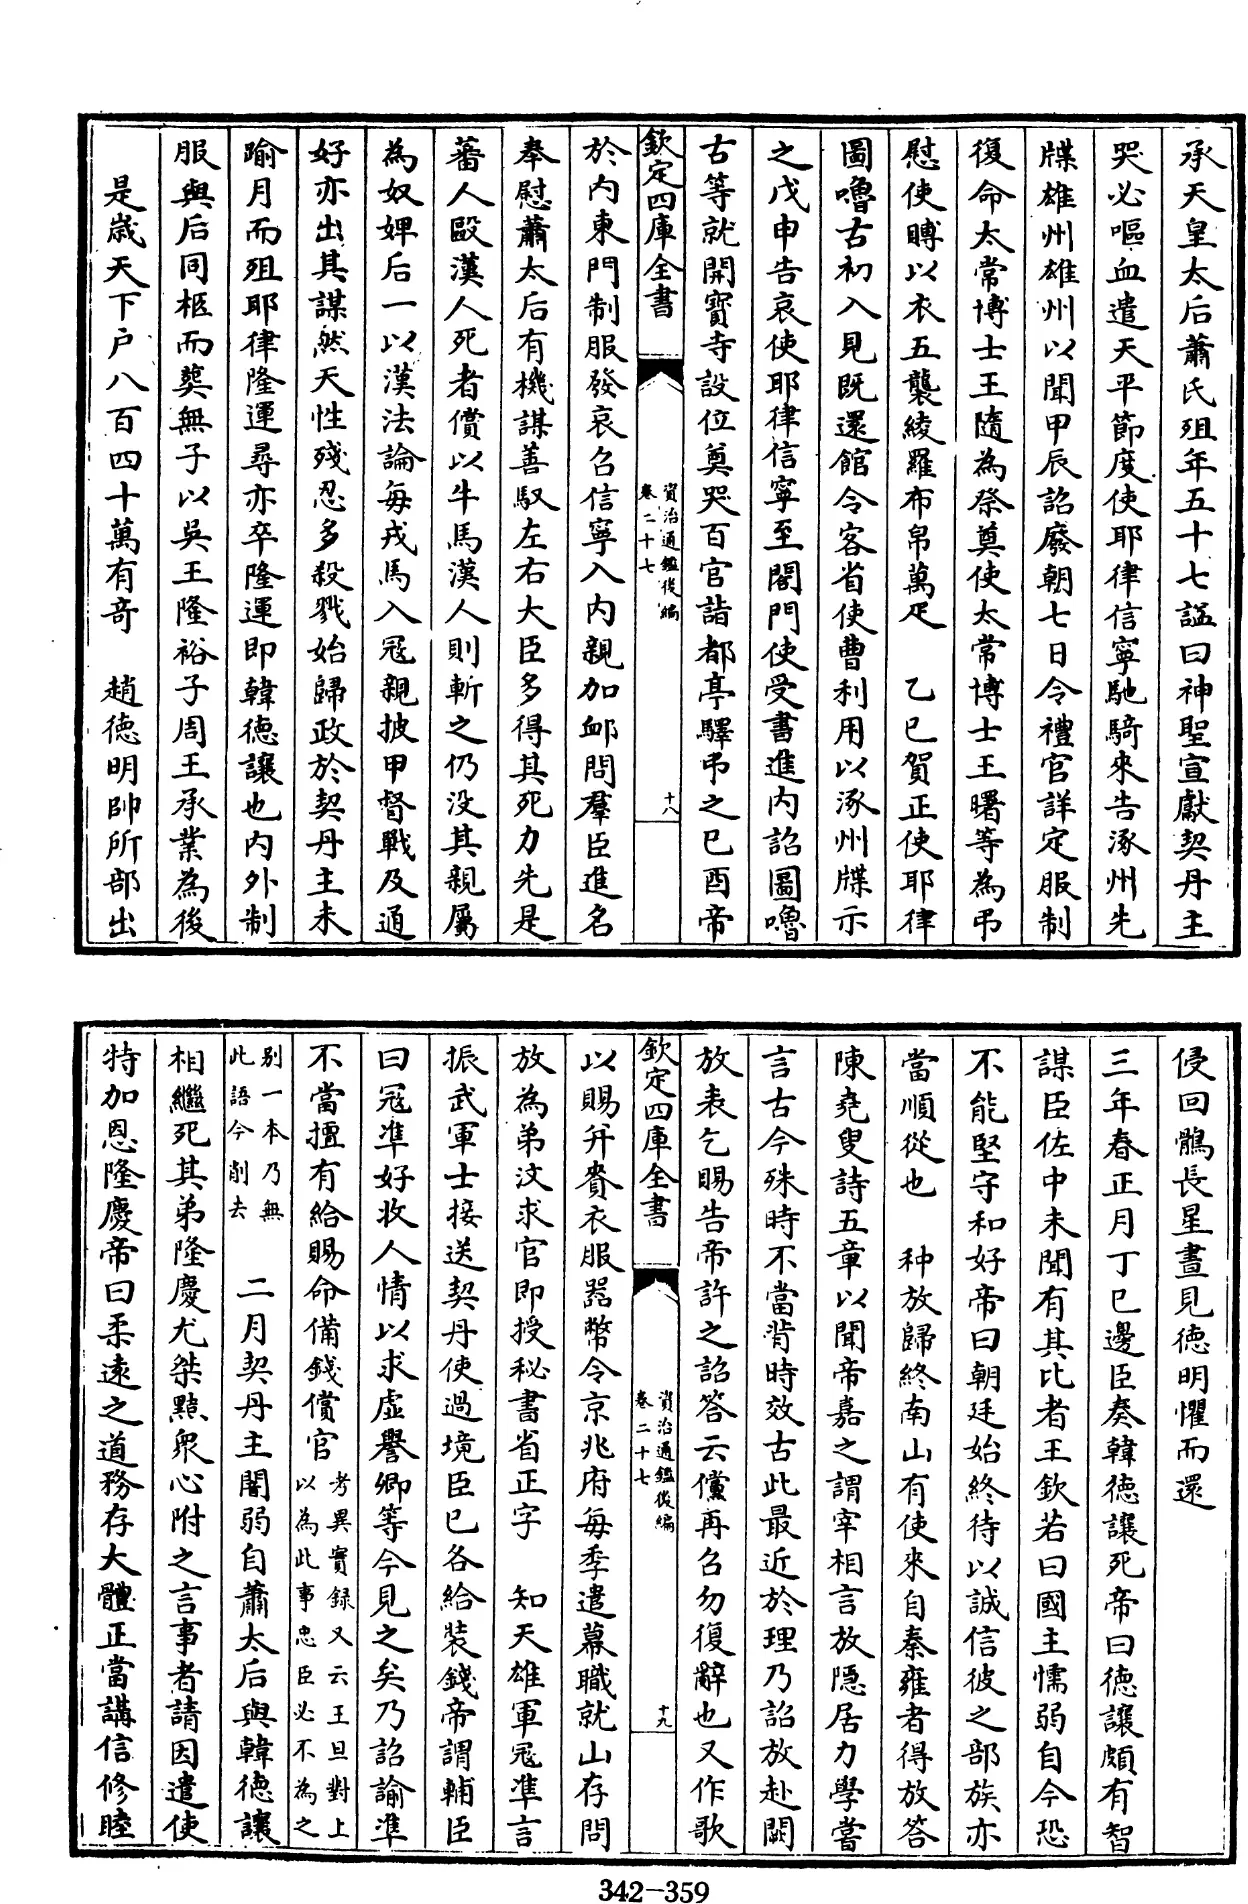 承天皇太后蕭氏殂年五十七諡曰神聖宣獻契丹主
哭必嘔血遣天平節度使耶律信寧馳騎來告涿州先
牒雄州雄州以聞甲辰詔廢朝七日令禮官詳定服制
復命太常博士王隨為祭奠使太常博士王曙等為弔
慰使賻以衣五襲綾羅布帛萬疋　乙巳賀正使耶律
圖嚕古初入見既還館令客省使曹利用以涿州牒示
之戊申告哀使耶律信寧至閤門使受書進内詔圖嚕
古等就開寶寺設位奠哭百官詣都亭驛弔之已酉帝
欽定四庫全書
資治通鑑後編
卷二十七
十八
於内東門制服發哀召信寧入内親加卹問羣臣進名
奉慰蕭太后有機謀善馭左右大臣多得其死力先是
蕃人毆漢人死者償以牛馬漢人則斬之仍没其親屬
為奴婢后一以漢法論每戎馬入冦親披甲督戰及通
好亦出其謀然天性殘忍多殺戮始歸政於契丹主未
踰月而殂耶律隆運尋亦卒隆運即韓徳讓也内外制
服與后同柩而葬無子以吳王隆裕子周王承業為後
是歳天下户八百四十萬有奇　趙徳明帥所部出
侵回鶻長星晝見徳明懼而還
三年春正月丁巳邊臣奏韓徳讓死帝曰徳讓頗有智
謀臣佐中未聞有其比者王欽若曰國主懦弱自今恐
不能堅守和好帝曰朝廷始終待以誠信彼之部族亦
當順從也　种放歸終南山有使來自秦雍者得放答
陳堯叟詩五章以聞帝嘉之謂宰相言放隠居力學嘗
言古今殊時不當背時效古此最近於理乃詔放赴闕
放表乞賜告帝許之詔答云儻再召勿復辭也又作歌
欽定四庫全書
資治通鑑後編
卷二十七
十九
以賜并賚衣服器幣令京兆府每季遣幕職就山存問
放為弟汶求官即授秘書省正字　知天雄軍冦準言
振武軍士接送契丹使過境臣已各給裝錢帝謂輔臣
曰冦準好收人情以求虛譽卿等今見之矣乃詔諭準
不當擅有給賜命備錢償官考異實録又云王旦對上
以為此事忠臣必不為之
别一本乃無
此語今削去　二月契丹主闇弱自蕭太后與韓徳讓
相繼死其弟隆慶尤桀黠衆心附之言事者請因遣使
特加恩隆慶帝曰柔逺之道務存大體正當講信修睦
342-359